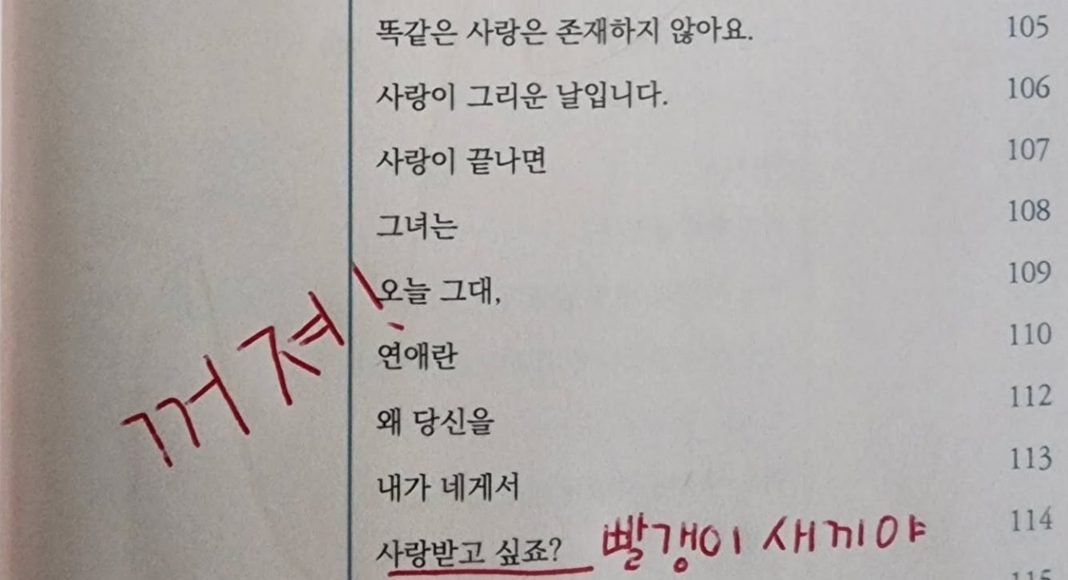 똑같은 사랑은 존재하지 않아요. 105
사랑이 그리운 날입니다. 106
사랑이 끝나면 107
그녀는 108
오늘 그대, 109
연애란 110
왜 당신을 112
내가 네게서 113
사랑받고 싶죠? 114
꺼져!
빨갱이 새끼야
115